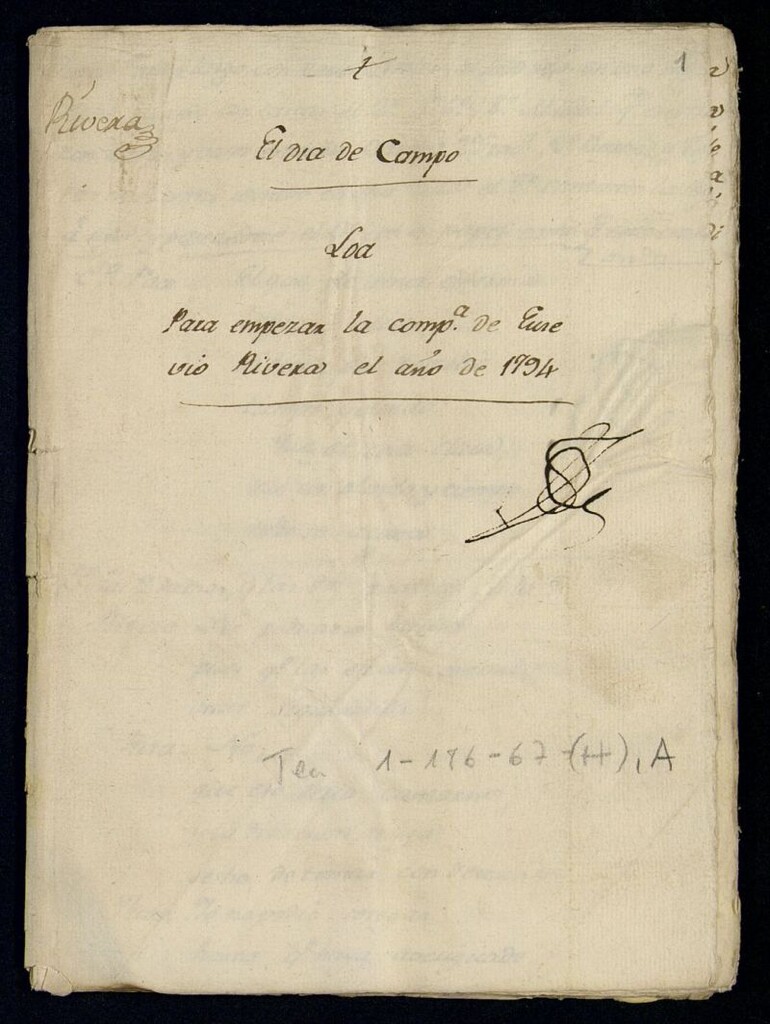 1
Rivera
El dia de Campo
Loa
Para empezar la comp.ª de Euse
vio Rivera el año de 1794
Tea 1-186-67-(H), A